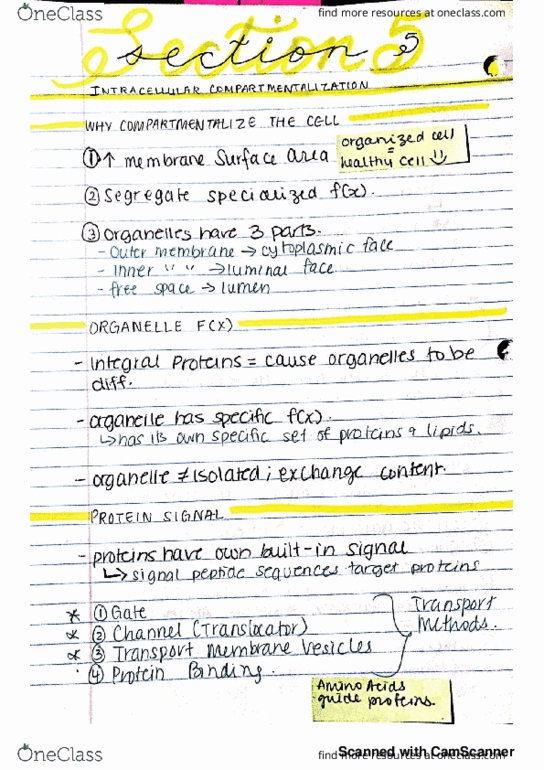 OneClass
find more resources at oneclass.com
Section 5
section 5
INTRACELLULAR COMPARTMENTALIZATION
WHY COMPARTMENTALIZE THE CELL
① ↑ membrane surface area
organized cell
=
healthy cell
② Segregate specialized f(x).
③ Organelles have 3 parts.
- Outer membrane → cytoplasmic face
- Inner " " → luminal face
- free space → lumen
ORGANELLE F(X)
- Integral Proteins = cause organelles to be
diff.
- organelle has specific f(x).
↳ has its own specific set of proteins & lipids.
- organelle ≠ isolated; exchange content.
PROTEIN SIGNAL
- proteins have own built-in signal
↳ signal peptide sequences target proteins
* ① Gate
* ② Channel (Translocator)
* ③ Transport Membrane Vesicles
④ Protein
Transport
Methods.
Amino Acids
guide proteins.
OneClass
find more resources at oneclass.com
Scanned with CamScanner